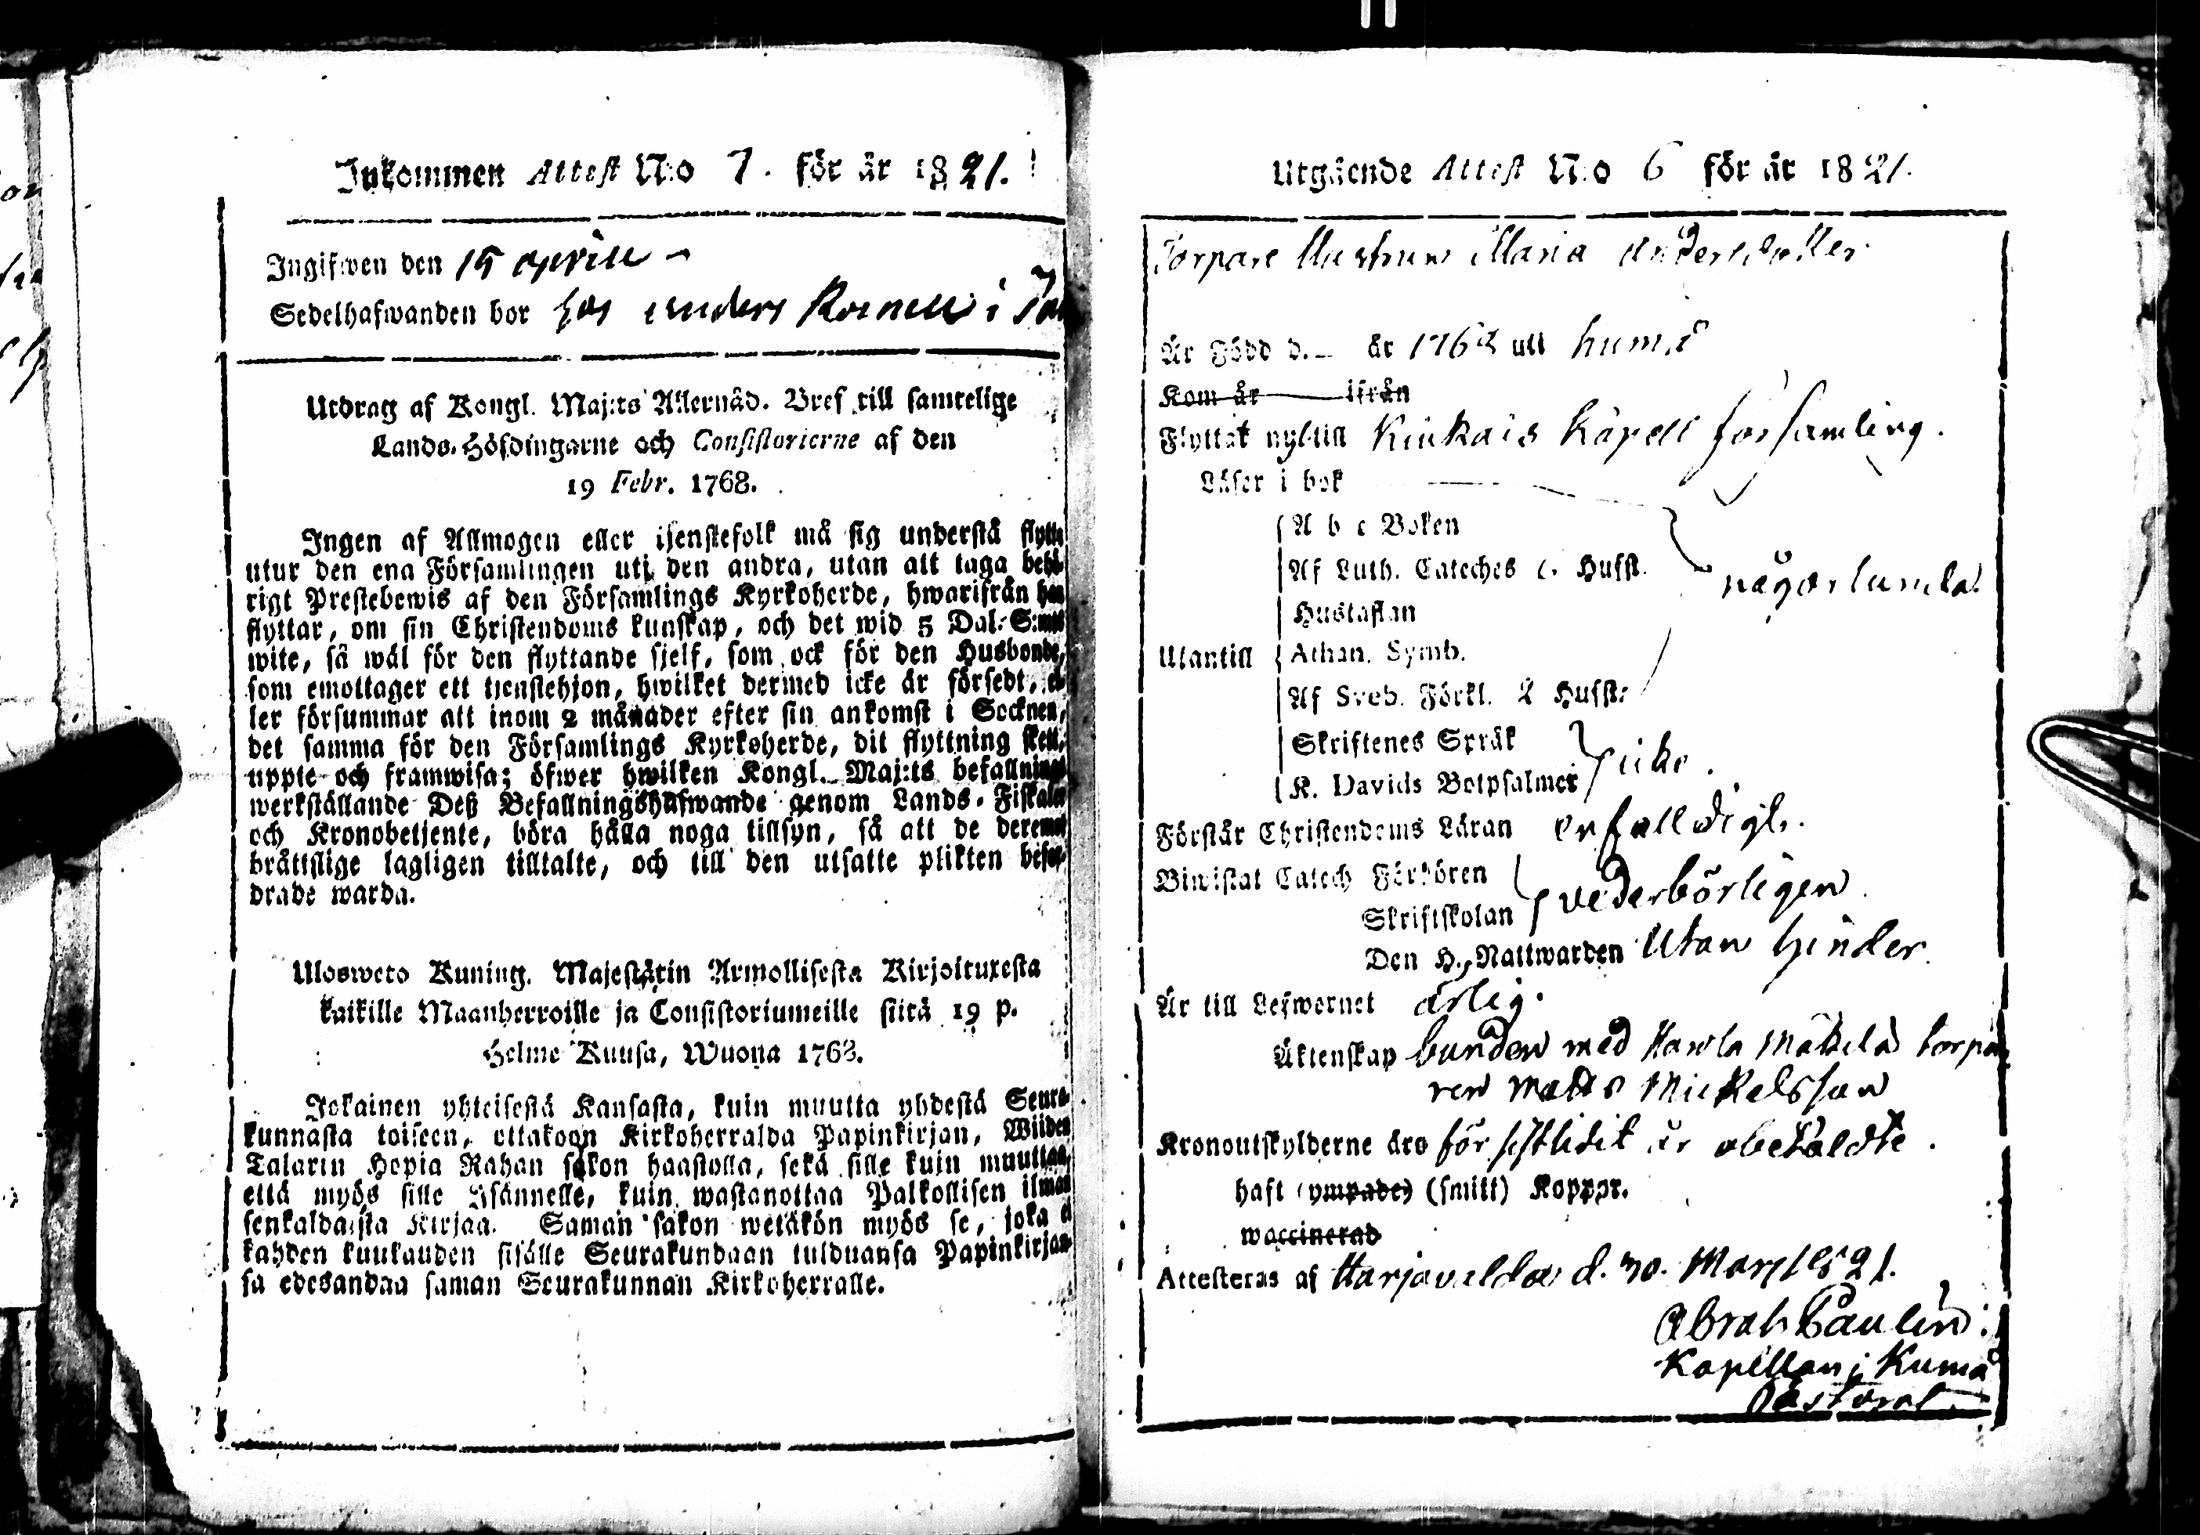 Inkommen Attest N:o 7. för år 1821.
Ingifwen den 15 aprill
Sedelhafwanden bor hos anders i
Utdrag af Kongl. Maj:ts Allernåd. Bref till samtelige
Lands-Höfdingarne och Consistorierne af den
19 Febr. 1768.
Ingen af Allmogen eller tjenstefolk må sig understå flytta
utur den ena Församlingen uti den andra, utan att taga behö-
rigt Prestebewis af den Församlings Kyrkoherde, hwarifrån han
flyttar, om sin Christendoms kunskap, och det wid 5 Dal. S:mts
wite, så wäl för den flyttande sjelf, som ock för den Husbonde,
som emottager ett tjenstehjon, hwilket dermed icke är försedt, el-
ler försummar att inom 2 månader efter sin ankomst i Socknen,
det samma för den Församlings Kyrkoherde, dit flyttning skett,
uppte och framwisa; öfwer hwilken Kongl. Maj:ts befallnings
werkställande Deß Befallningshafwande genom Lands-Fiskaler
och Kronobetjente, böra hålla noga tillsyn, så att de deremot
bråttslige lagligen tilltalte, och till den utsatte plikten befor-
drade warda.
Ulosweto Kuning. Majestätin Armollisesta Kirjoituxesta
kaikille Maanherroille ja Consistoriumeille siitä 19 p.
Helme Kuusa, Wuona 1768.
Jokainen yhteisestä Kansasta, kuin muutta yhdestä Seura-
kunnasta toiseen, ottakoon Kirkoherralda Papinkirjan, Wiiden
Talarin Hopia Rahan sakon haastolla, sekä sille kuin muuttaa,
että myös sille Isännelle, kuin wastanottaa Palkollisen ilman
senkaldaista Kirjaa. Saman sakon wetäkön myös se, joka ei
kahden kuukauden sisälle Seurakundaan tulduansa Papinkirjan-
sa edesandaa saman Seurakunnan Kirkoherralle.
Utgående Attest N:o 6 för år 1821.
Torpare Hustrun Maria Andersdotter
Är Född d. – år 176 uti Kumå
Kom år ifrån
Flyttat nyttill Kiukais Kapell församling.
Läser i bok
A b c Boken
Af Luth. Cateches Husst.
Hustaflan någorlunda
Utantill Athan. Symb.
Af Sveb. Förkl. 2 Husst:
Skriftenes Språk
K. Davids Botpsalmer icke.
Förstår Christendoms Läran enfalldigt.
Biwistat Catech Förhören
Skriftskolan vederbörligen
Den H. Nattwarden Utan hinder.
Är till Lefwernet ärlig.
Äktenskap bunden med Mäkelä torpa
ren Matts Mickelsson
Kronoutskylderne äro för sistledit år obetaldte.
haft (ympade) (smitt) Koppor.
waccinerad
Attesteras af Harjavalda d. 30. Mars 1821.
Abrah Paulin:
Kapellan i Kumå
Pastorat.